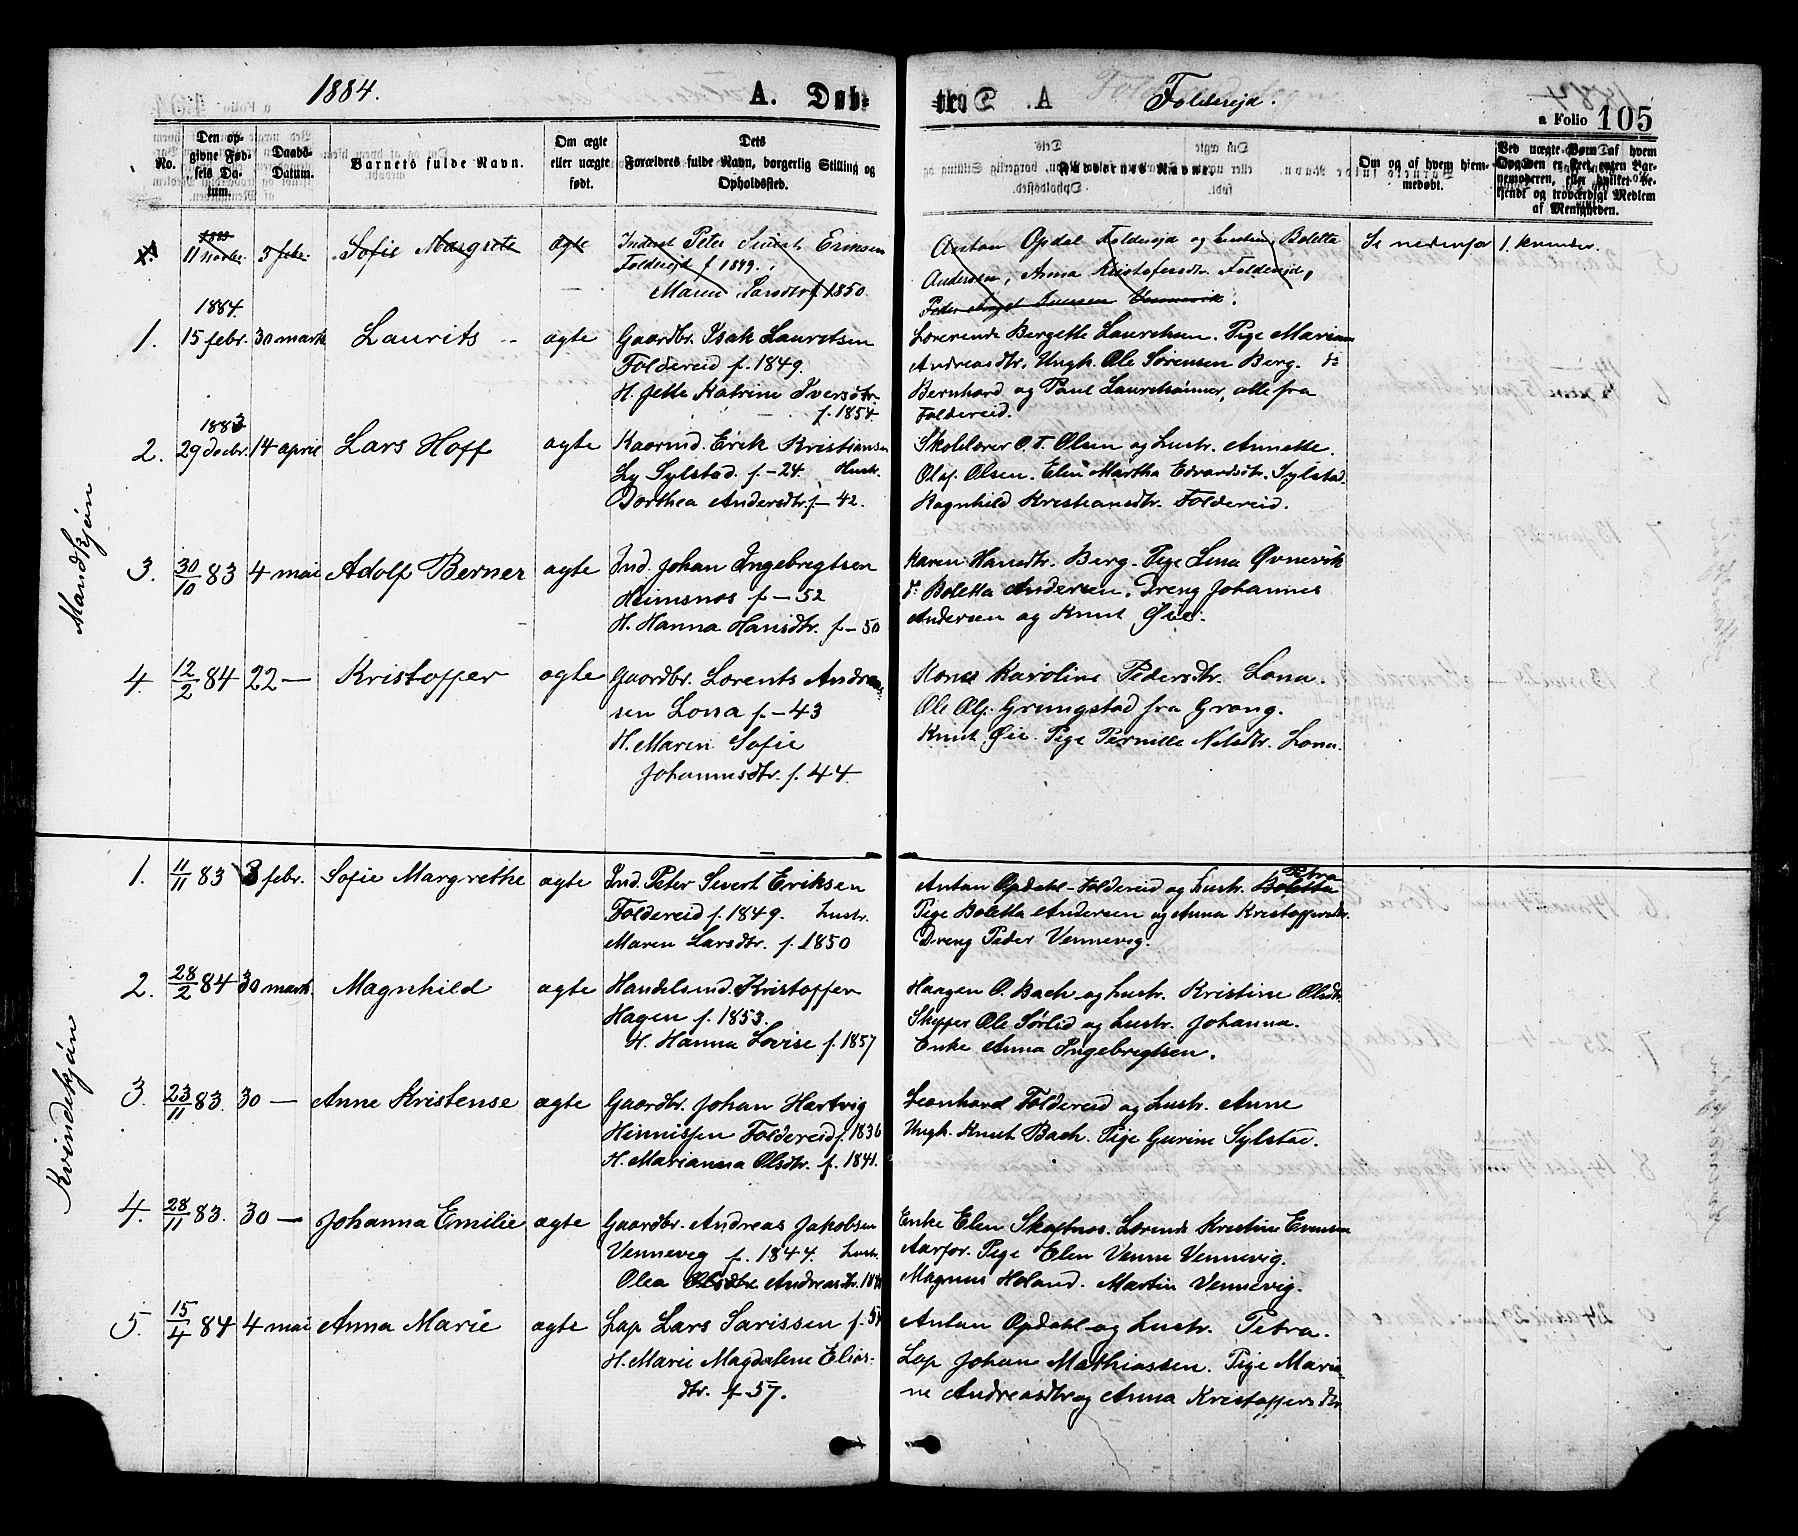 1884.
A. Døb-
A.
Foldereid.
a Folio 105
No.
Den op-
givne Fød-
sels Da-
tum.
Daabs-
Datum.
Barnets fulde Navn.
Om ægte
eller uægte
født.
Dets
Forældres fulde Navn, borgerlig Stilling og
Opholdssted.
Faddernes Navne.
Om og af hvem hjem-
medøbt.
Ved uægte Børn af hvem
Opgaven er skeet, enten Bar-
nemoderen, eller hvilket be-
kjendt og troværdigt Medlem
af Menigheden.
1883
11 novbr. 3 febr. Sofie Margrete ægte Inderst Peter Sivert Eriksen
Foldereid f 1849.
Maren Larsdtr f 1850
Anton Opdal Foldereid og hustru Boletta
Andersen, Anna Kristofersdtr. Foldereid,
Peder Vennevik.
Se nedenfor 1. kvinder.
Mandkjøn
1884.
1. 15 febr. 30 marts Laurits ægte Gaardbr. Isak Lauretsen
Foldereid f. 1849.
H. Jette Katrine Iversdtr.
f. 1854.
Lærerinde Bergette Lauretsen. Pige Marian
Andreasdtr. Ungk. Ole Sørensen Berg. do
Bernhard og Paul alle fra
Foldereid.
1883
2. 29 decbr. 14 april Lars Hoff ægte Kaarmd. Erik Kristiansen
Ly Sylstad. f. - 24. Hust.
Dorthea Andersdtr. f - 42.
Skolelærer O. T. Olsen og hustr. Annette.
Olaf Olsen. Elen Martha Edvardsdtr. Sylstad.
Ragnhild Kristiansdtr. Foldereid.
3. 30/10 83 4 mai Adolf Berner ægte Ind. Johan Ingebregtsen
Heimsnes f - 52
H. Hanna Hansdtr. f - 50
Karen Hansdtr. Berg. Pige Lina Øvnevik
do Boletta Andersen. Dreng Johannes
Andersen og Knut Øie.
4. 12/2 84 22 — Kristoffer ægte Gaardbr. Lorents Andrea
sen Lona f. - 43
H. Maren Sofie
Johannesdtr. f. 44.
Kone Karoline Pedersdtr. Lona.
Ole Alf. Grungstad fra Grong.
Knut Øie Pige Pernille Nilsdtr. Lona.
Kvindekjøn
1. 11/11 83 3 febr. Sofie Margrethe ægte Ind. Peter Sivert Eriksen
Foldereid f. 1849. hustr.
Maren Larsdtr. f. 1850
Petra
Anton Opdahl - Foldereid og hustr. Boletta
Pige Boletta Andersen og Anna Kristoffersdtr.
Dreng Peder Vennevig.
2. 28/2 84 30 marts. Magnhild ægte Handelsmd. Kristoffer
Hagen f. 1853.
H. Hanna Lovise f. 1857
Haagen O. Bach og hustr. Kristine Olsdtr.
Skipper Ole Sørlid og hustr. Johanna.
Enke Anna Ingebregtsen.
3. 23/11 83. 30 — Anne Kristense ægte Gaardbr. Johan Hartvig
Henrissen Foldereid f. 1836
H. Marianna Olsdtr. f. 1841.
Leonhard Foldereid og hustr. Anne
Ungk. Knut Bach. Pige Gurine Sylstad.
4. 28/11 83. 30 — Johanna Emilie ægte Gaardbr. Andreas Jakobsen
Vennevig f. 1844. hustr.
Olea Olsdtr Andreasdtr.
Enke Elen Skoftnos. Lærerinde Kristine Evensen
Aarfor. Pige Elen Venne Vennevig.
Magnus Holand. Martin Vennevig.
5. 15/4 84 4 mai Anna Marie ægte Lap Lars Larissen f. 54
H. Marie Magdalene Elias-
dtr. f 57.
Anton Opdahl og hustr. Petra.
Lap Johan Mathiassen. Pige Maria
ne Andreasdtr og Anna Kristoffersdtr